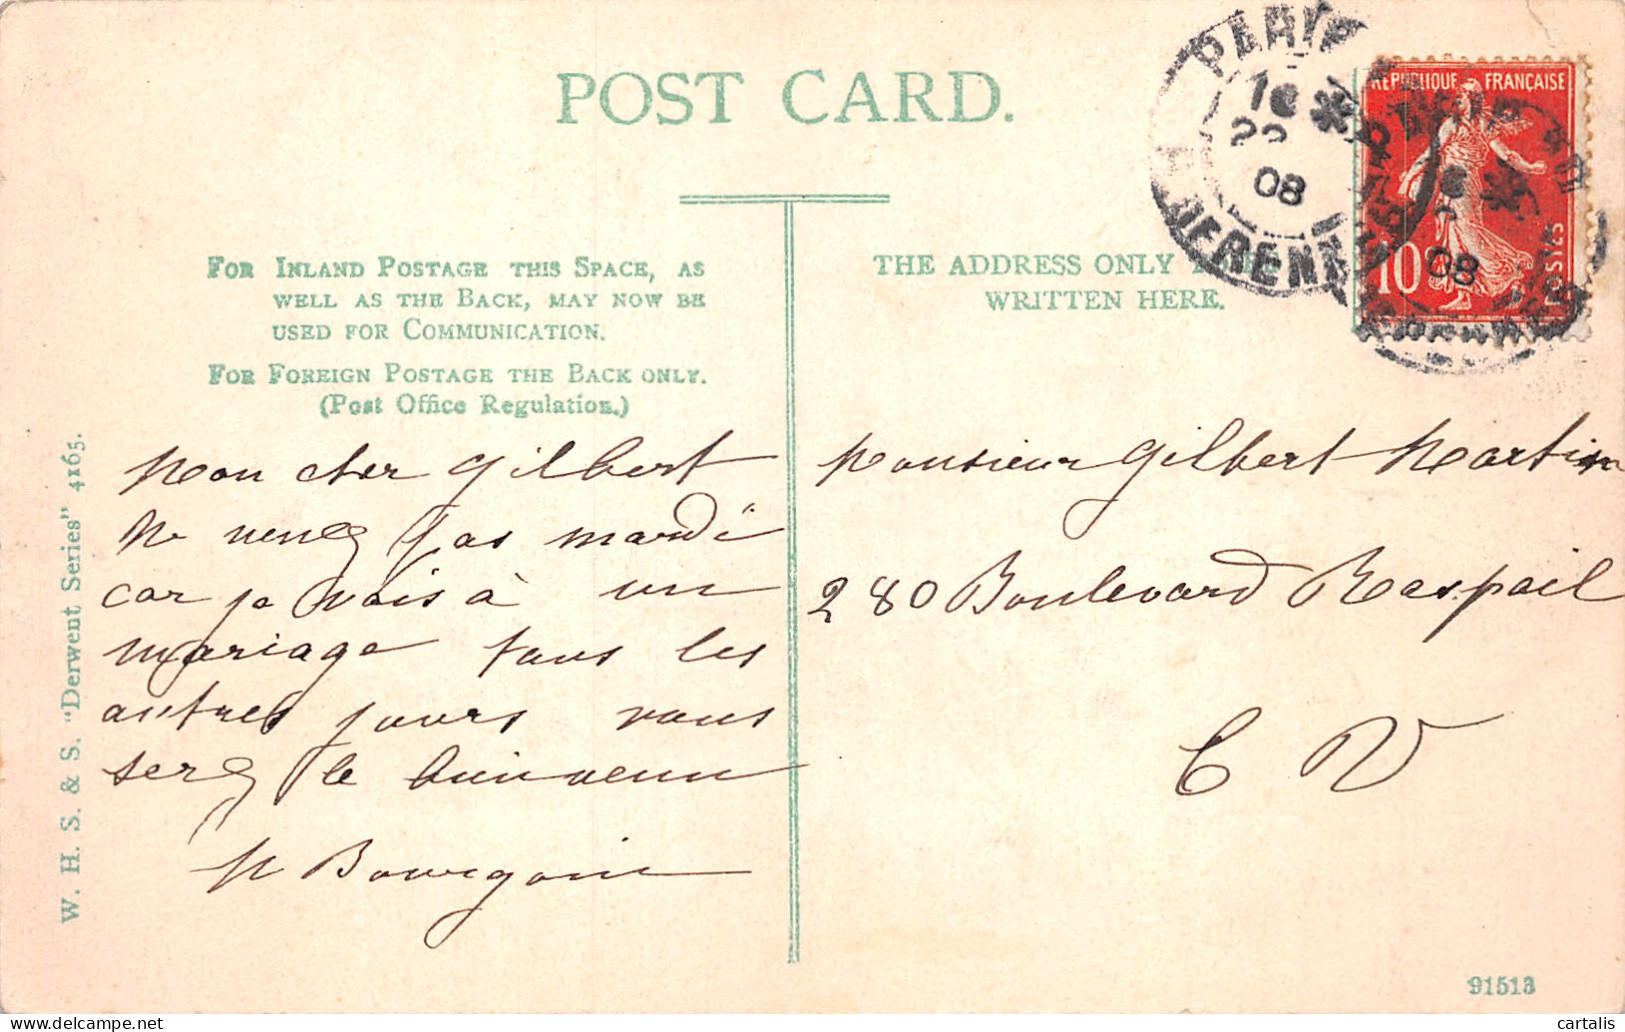 POST CARD.
FOR INLAND POSTAGE THIS SPACE, AS
WELL AS THE BACK, MAY NOW BE
USED FOR COMMUNICATION.
FOR FOREIGN POSTAGE THE BACK ONLY.
(Post Office Regulation.)
THE ADDRESS ONLY
WRITTEN HERE.
PARIS
08
REPUBLIQUE FRANÇAISE
10c
POSTES
08
W. H. S. & S. "Derwent Series" 4165.
Mon cher Gilbert
Ne venez pas mardi
car je vais à un
mariage tous les
autres jours vous
serez le bienvenu
M Bourgoin
Monsieur Gilbert Martin
280 Boulevard Raspail
E V
91513
cartalis